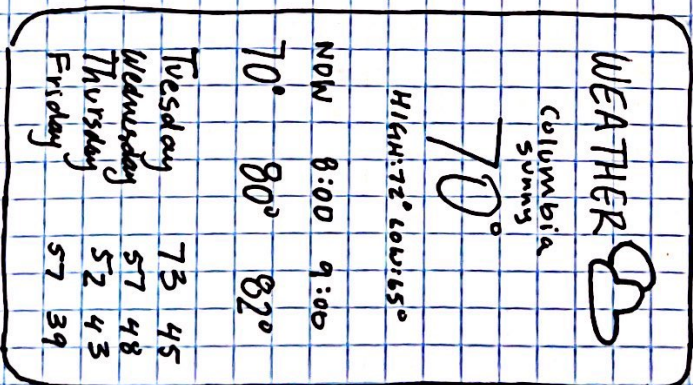 WEATHER
Columbia
sunny
70°
HIGH:72° LOW:65°
NOW 8:00 9:00
70° 80° 82°
Tuesday 73 45
Wednesday 57 48
Thursday 52 43
Friday 57 39